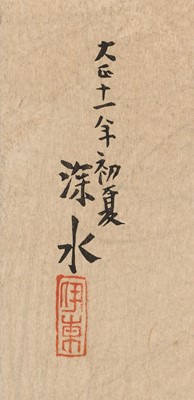 大正十一年初夏
深水
伊東